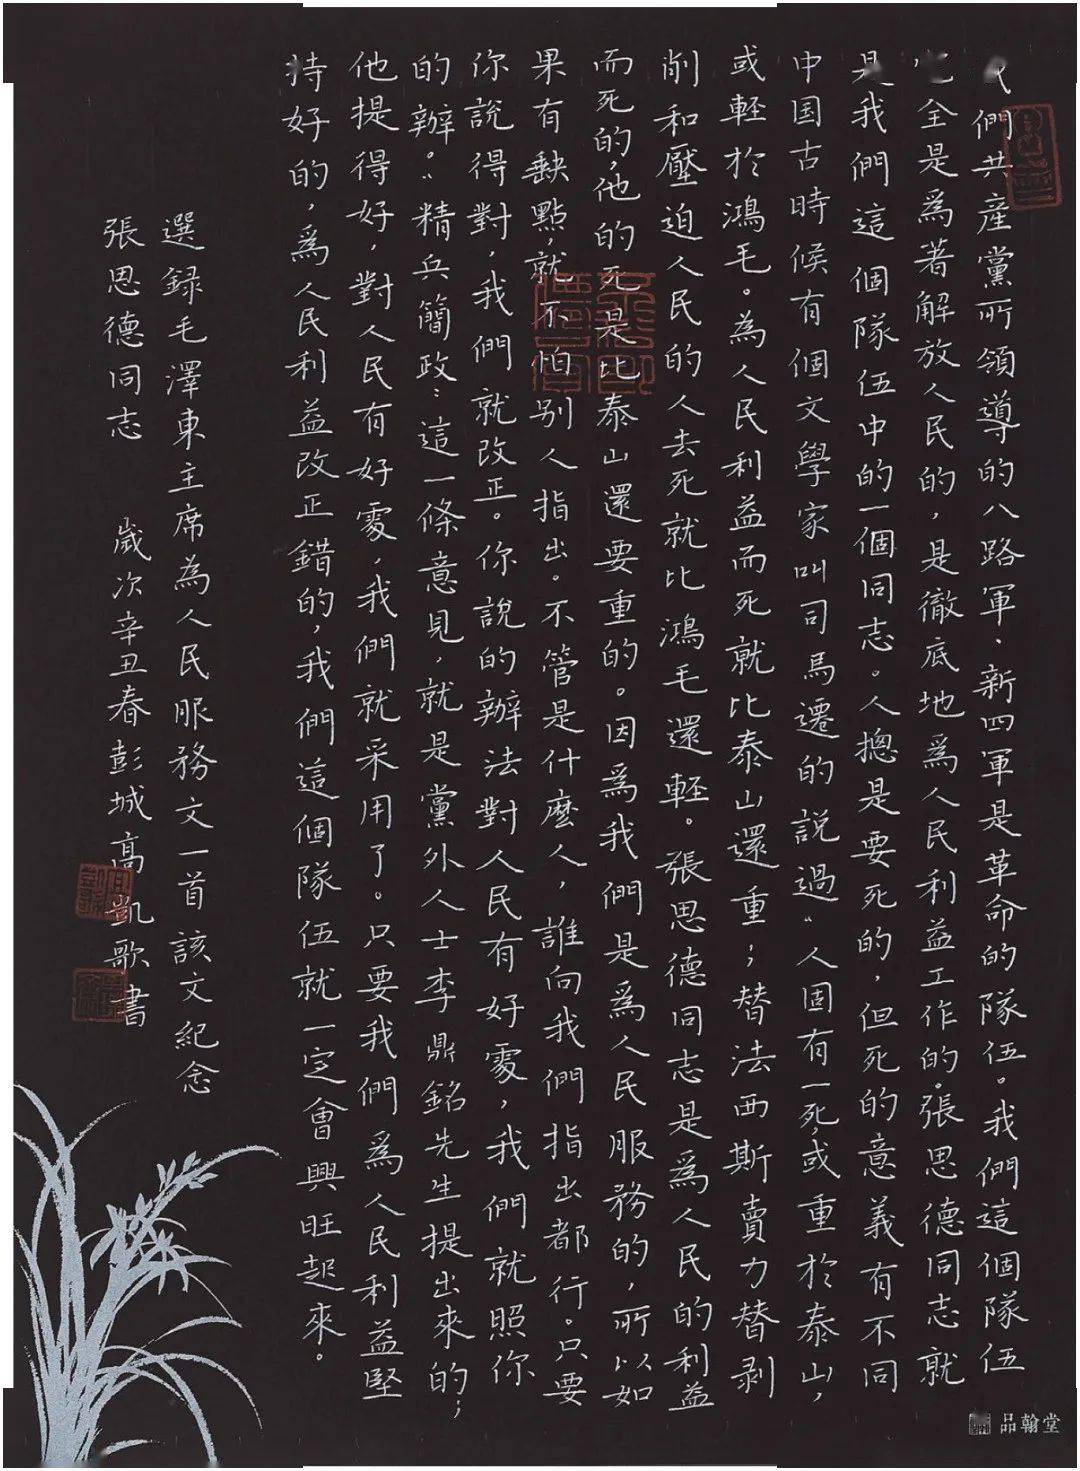 們共産黨所領導的八路軍、新四軍是革命的隊伍。我們這個隊伍
完全是爲著解放人民的，是徹底地爲人民利益工作的。張思德同志就
是我們這個隊伍中的一個同志。人摠是要死的，但死的意義有不同
中国古時候有個文學家叫司馬遷的說過“人固有一死，或重於泰山，
或輕於鴻毛。為人民利益而死就比泰山還重；替法西斯賣力替剥
削和壓迫人民的人去死就比鴻毛還輕。張思德同志是爲人民的利益
而死的，他的死是比泰山還要重的。因爲我們是爲人民服務的，所以如
果有缺點，就不怕别人指出。不管是什麼人，誰向我們指出都行。只要
你說得對，我們就改正。你說的辦法對人民有好處，我們就照你
的辦。”精兵簡政：這一條意見，就是黨外人士李鼎銘先生提出來的；
他提得好，對人民有好處，我們就采用了。只要我們爲人民利益堅
持好的，爲人民利益改正錯的，我們這個隊伍就一定會興旺起來。
選録毛澤東主席為人民服務文一首該文紀念
張思德同志 歲次辛丑春彭城高凱歌書
品翰堂